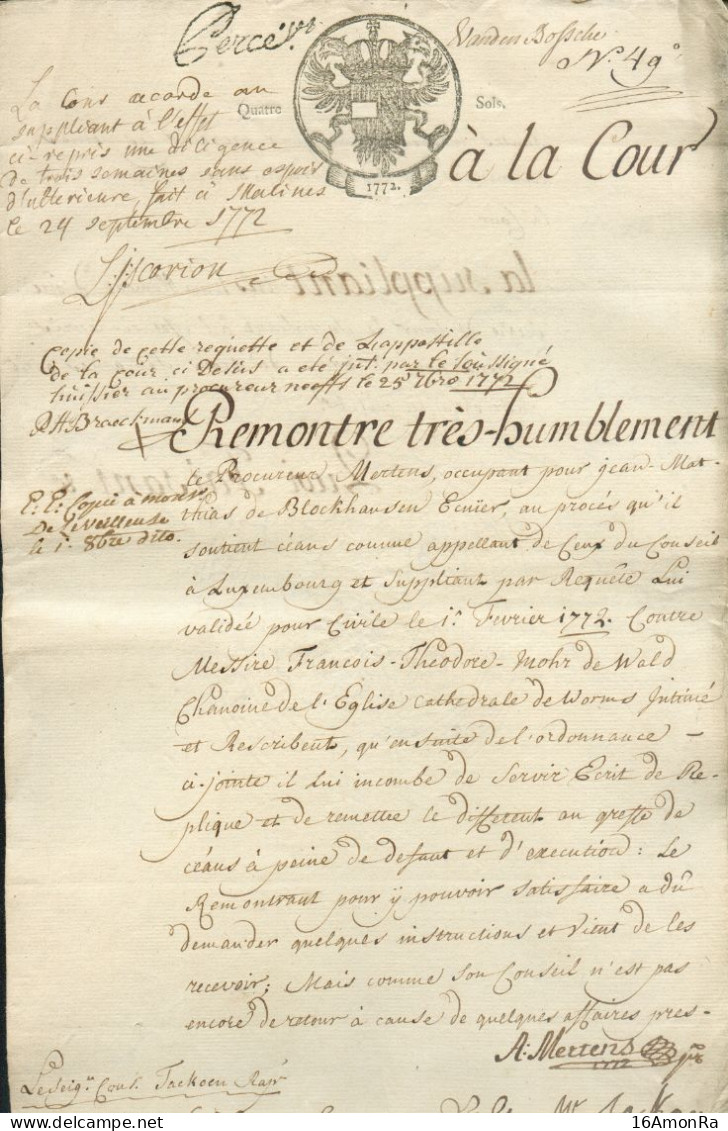 Vanden Bossche
N.º 49º
Quatre Sols.
1772.
à la Cour
La Cour accorde au
suppliant à l'effet
ci-repris une diligence
de trois semaines sans espoir
d'ulterieure, fait à Malines
le 24 septembre 1772
Copie de cette requette et de L'appostille
de la cour ci Desüs a eté jnt. par le soussigné
huissier au procureur neeffs le 25 7bre 1772
Braeckman
Remontre très-humblement
le Procureur Mertens, occupant pour jean-Mat-
thias de Blockhausen Ecuïer, au procés qu'il
soutient céans comme appellant de Ceux du Conseil
à Luxembourg et Suppliant par Requête Lui
validée pour Civile le 1.r Fevrier 1772. Contre
Messire François-Theodore-Mohr de Wald
Chanoine de l'Eglise Cathedrale de Worms Intimé
et Rescribent, qu'en suite de l'ordonnance -
ci-jointe il Lui incombe de Servir Ecrit de Re-
plique et de remettre le different au greffe de
céans à peine de defaut et d'execution: Le
Remontrant pour ÿ pouvoir satisfaire a dû
demander quelques instructions et vient de les
recevoir; Mais comme son Conseil n'est pas
encore de retour à cause de quelques affaires pres-
P: P: Copie à
De
le 1.r 8bre d.to.
A: Mertens
1772
Le seig.r Cons.
16AmonRa
delcampe.net